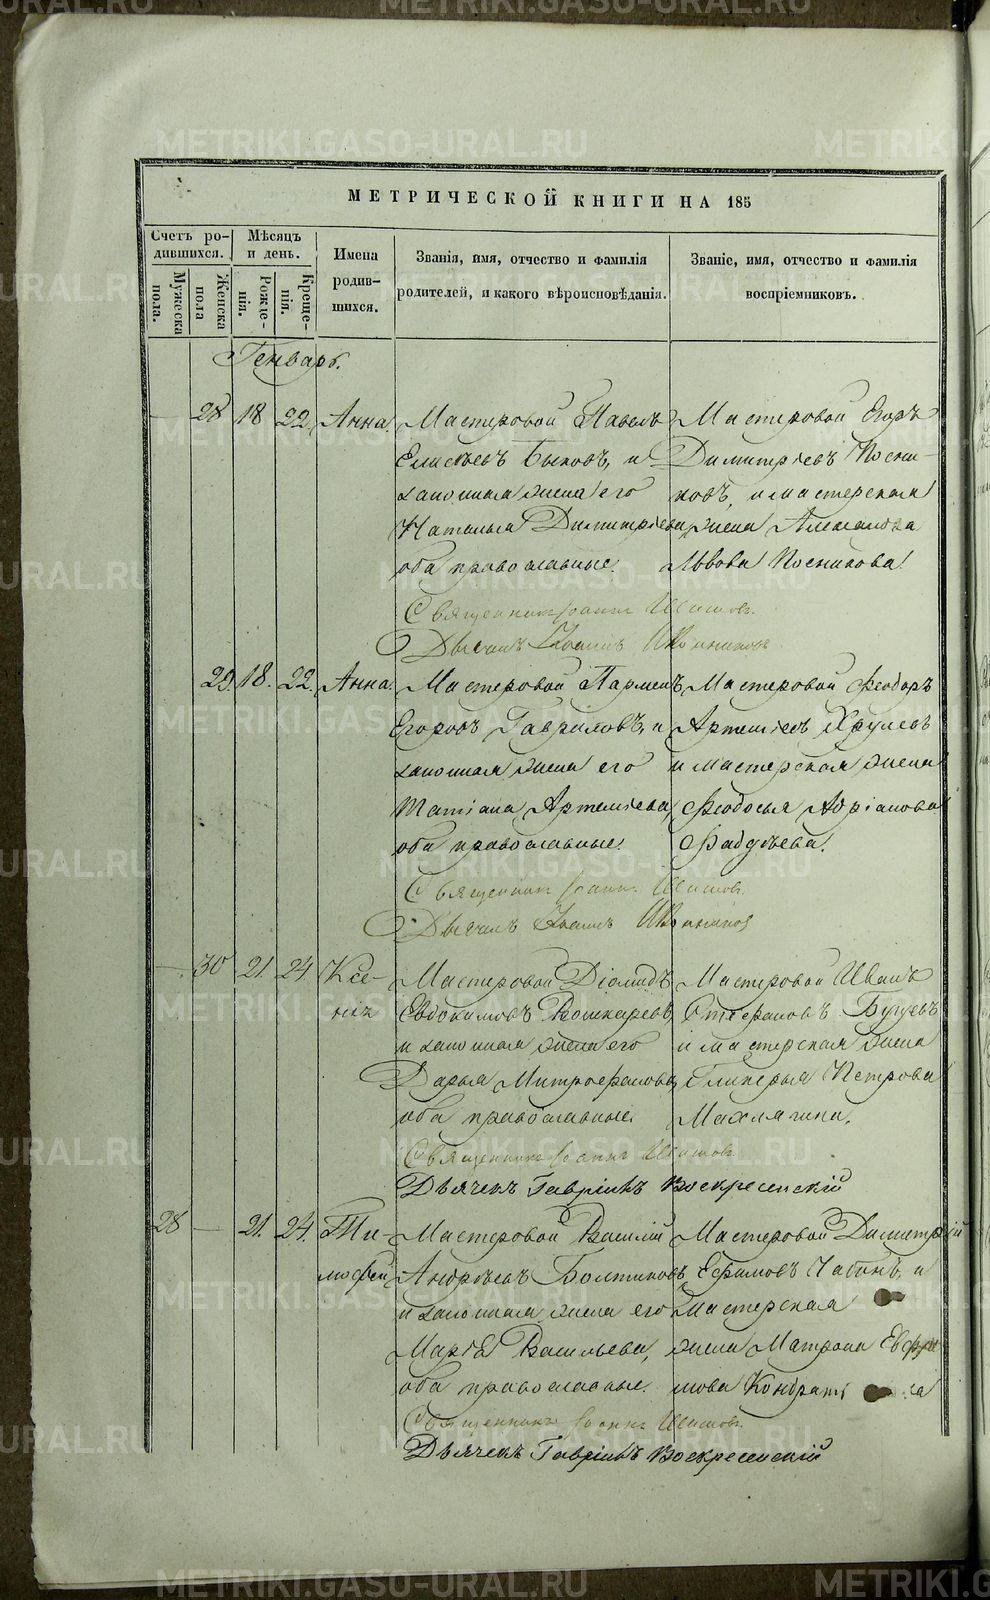 МЕТРИЧЕСКОЙ КНИГИ НА 185
Счетъ родившихся.
Мужеска пола.
Женска пола
Мѣсяцъ и день.
Рожденія.
Крещенія.
Имена родившихся.
Званія, имя, отчество и фамилія родителей, и какого вѣроисповѣданія.
Званіе, имя, отчество и фамилія воспріемниковъ.
Генварь.
28 18 22 Анна
Мастеровой Павелъ
Елисѣевъ Быковъ, и
законная жена его
Наталья Димитріева
оба православные.
Мастеровой Егоръ
Димитріевъ Посни-
ковъ, и мастерская
жена Александра
Львова Посникова.
Священникъ Іоаннъ
Дьячекъ Іоаннъ
29. 18. 22. Анна.
Мастеровой Парменъ
Егоровъ Гавриловъ, и
законная жена его
Татіана Артеміева,
оба православные.
Мастеровой Феодоръ
Артеміевъ Хрулевъ
и мастерская жена
Феодосья Адріанова
Фадѣева.
Священникъ Іоаннъ
Дьячекъ Іоаннъ
30 21. 24. Ксе-
нія
Мастеровой Діомидъ
Евдокимовъ Вошкаревъ,
и законная жена его
Дарья Митрофанова,
оба православные.
Мастеровой Иванъ
Стефановъ Бугуевъ
и мастерская жена
Гликерья Петрова
Махлягина.
Священникъ Іоаннъ
Дьячекъ Гавріилъ Воскресенскій
28 21. 24. Ти-
мофей
Мастеровой Василій
Андрѣевъ Болтиковъ,
и законная жена его
Марѳа Васильева,
оба православные.
Мастеровой Димитрій
Ефимовъ Чабинъ, и
мастерская
жена Матрона Евфи-
мова
Священникъ Іоаннъ
Дьячекъ Гавріилъ Воскресенскій
METRIKI.GASO-URAL.RU